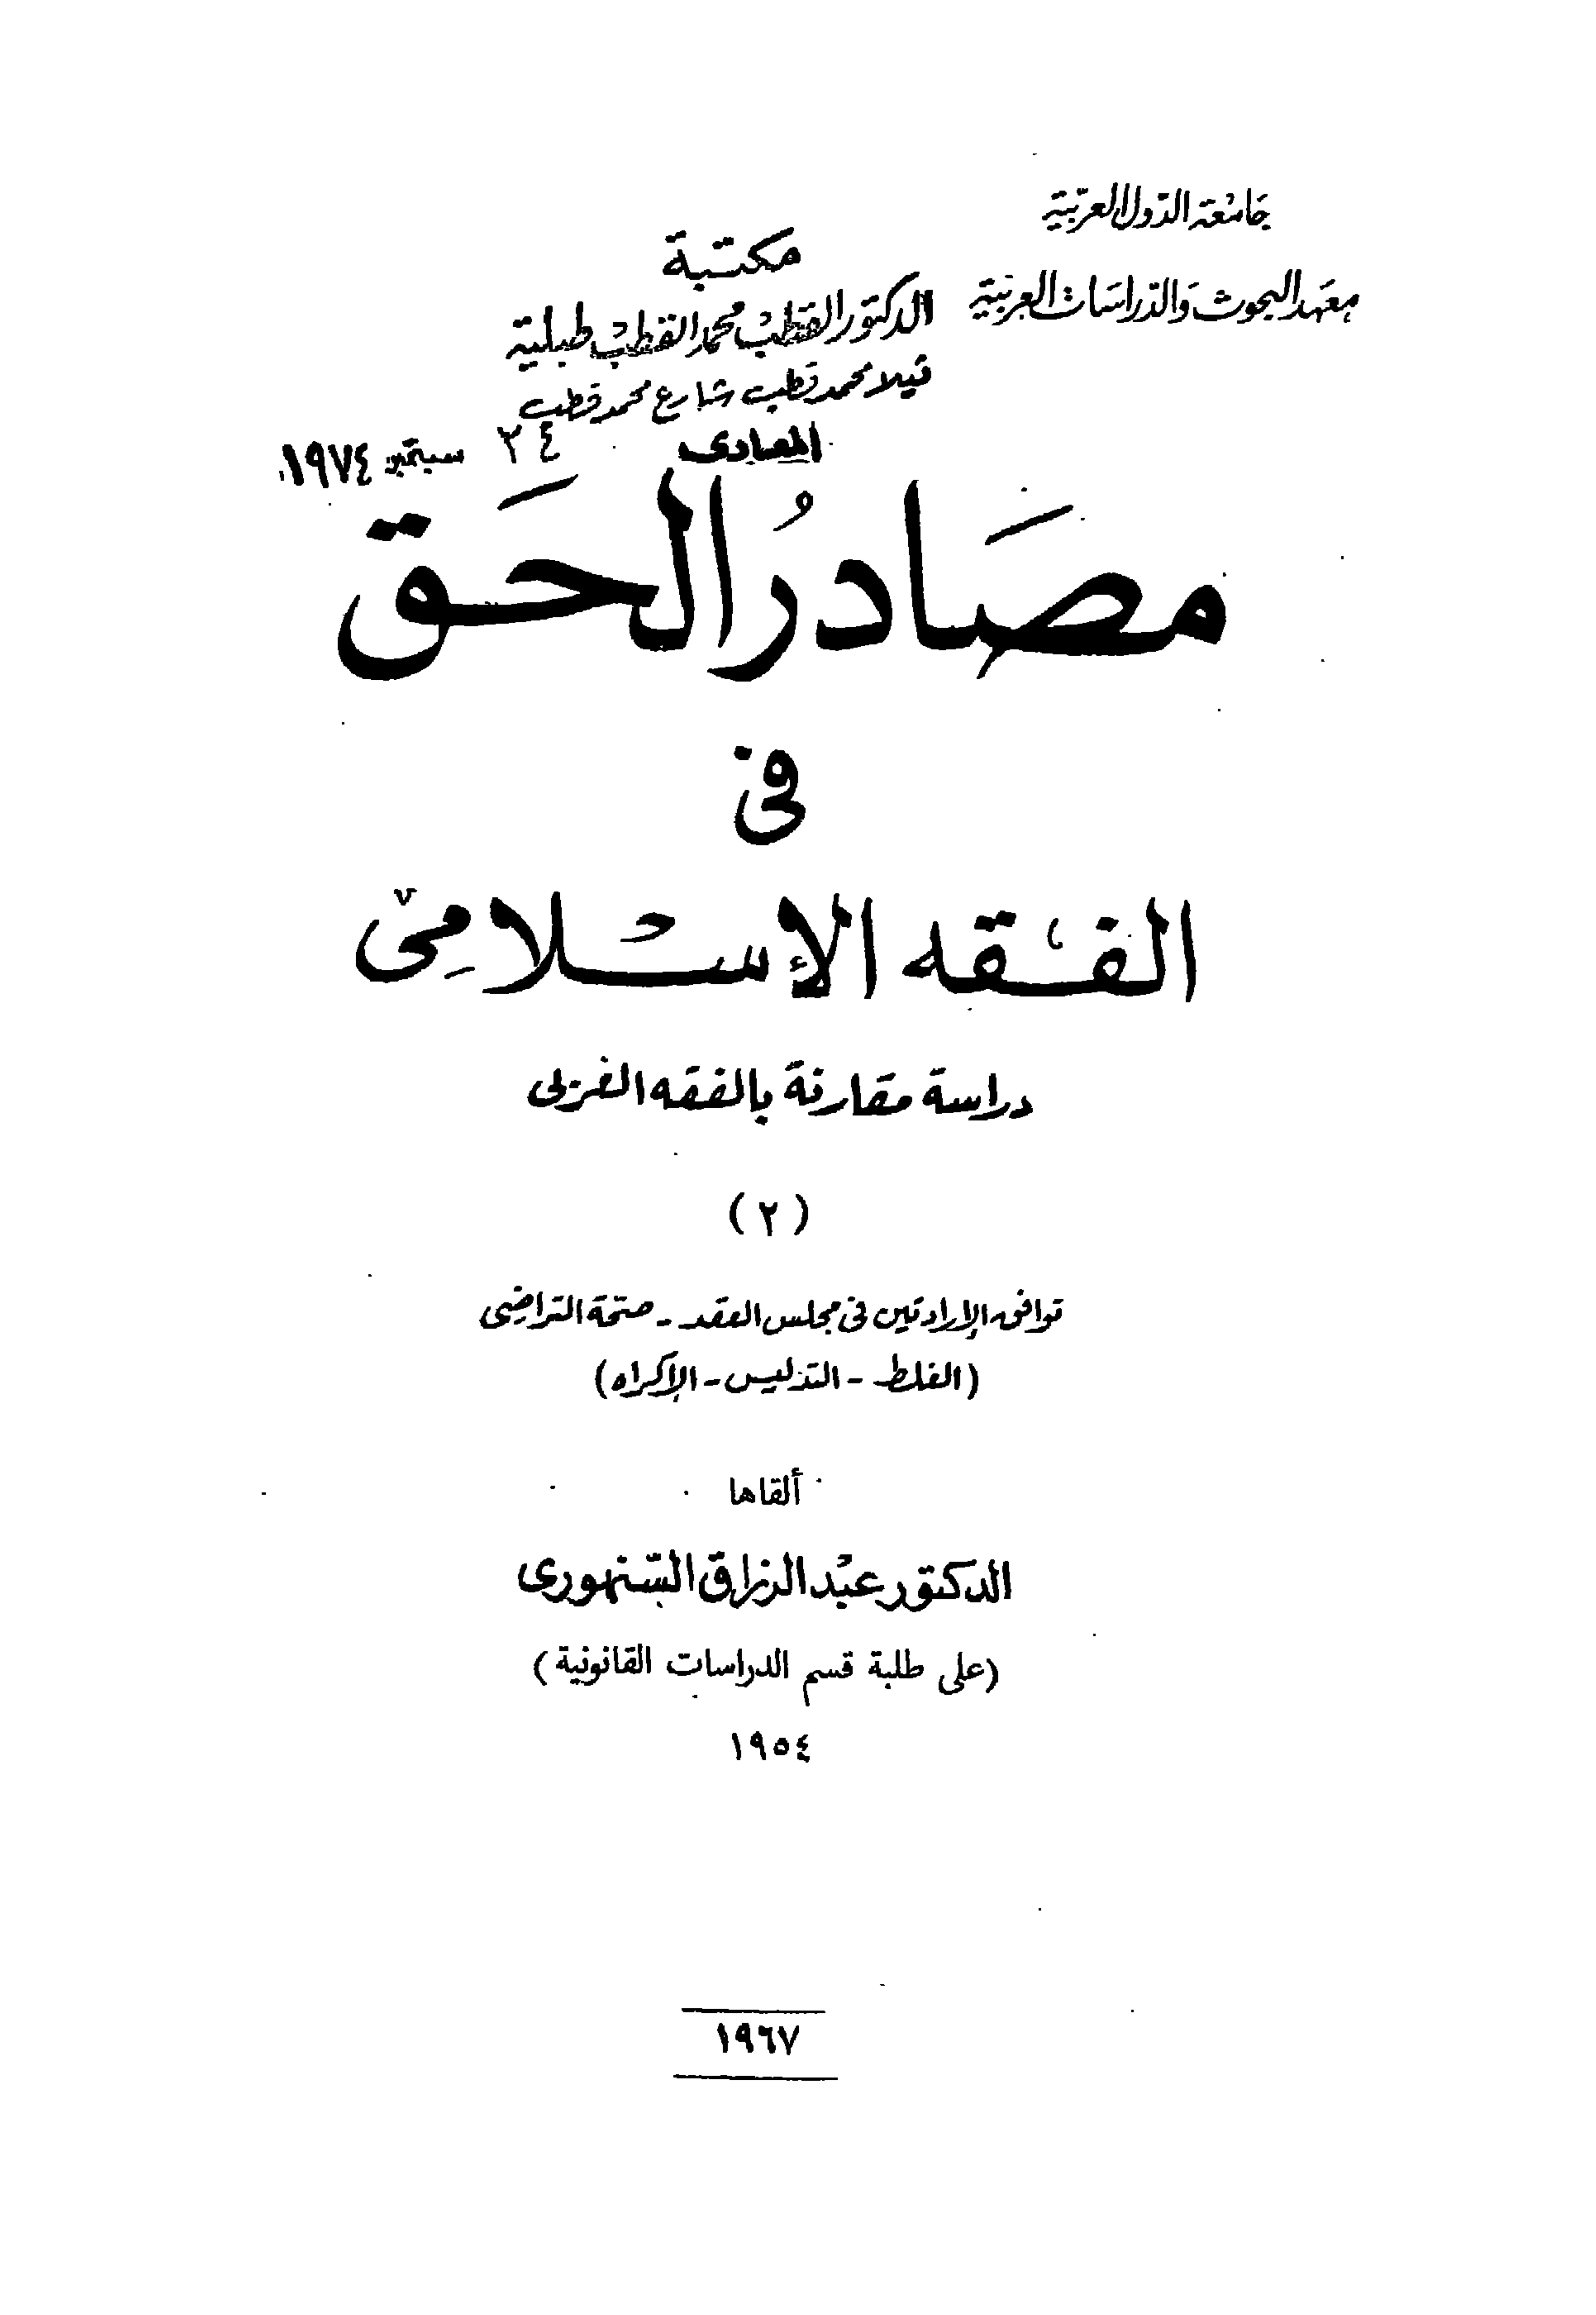 جامعة الدول العربية
معهد البحوث والدراسات العربية
مكتبة
الدكتور القطب محمد القطب طبلية
فيلا محمد قطب شارع محمد قطب
المعادى
٢٤ سبتمبر ١٩٧٤
مَصَادرُ الحَق
فى
الفقه الإسلامِى
دراسة مقارنة بالفقه الغربى
(٢)
توافق الإرادتين فى مجلس العقد - صحّة التراضِى
(الغلط - التدليس - الإكراه)
ألقاها
الدكتور عبْد الرزاق السّنهورى
(على طلبة قسم الدراسات القانونية)
١٩٥٤
١٩٦٧